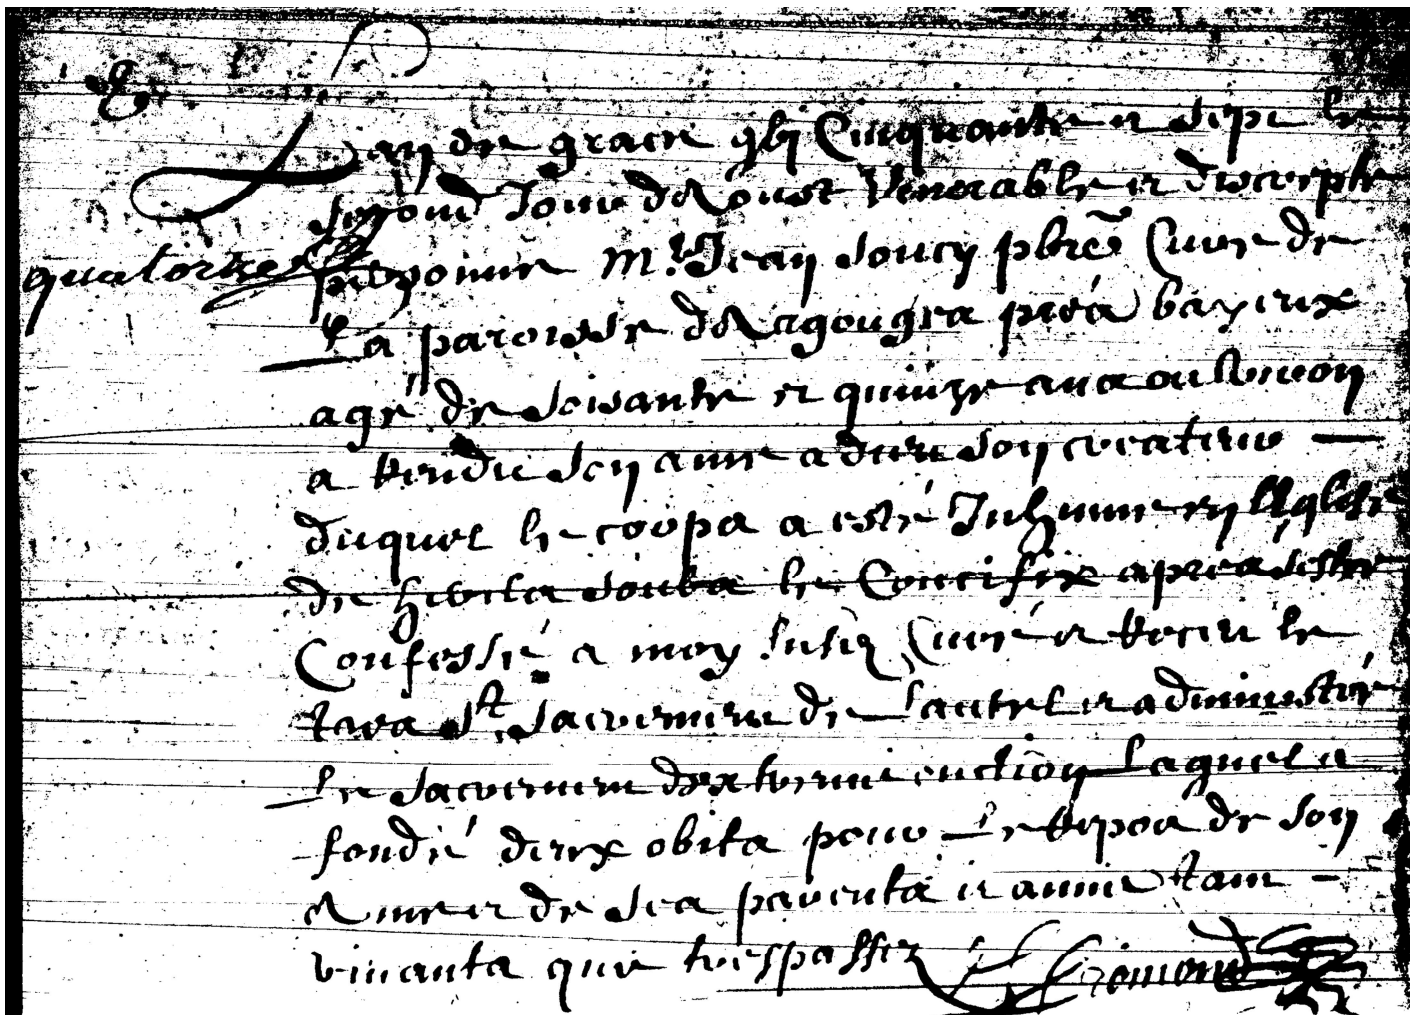 Lan de grace gbj Cinquante et sept le
second Jour d'Aoust Venerable et discrepte
quatorze
personne Mr Jean Soucy pbrē Curé de
La paroisse d'Agougea prés bayeux
agé de soisante et quinze ans ou Environ
a Rendu son ame a dieu son createur
duquel le corps a esté Inhumé en l'Eglise
de soubs le Crucifix apres sestre
Confessé a moy susd Curé et Receu le
tres St. Sacrement de L'autel et administré
Le Sacrement d'extreme onction Laquel a
fondé deux obits pour Le Repos de son
Ame et de ses parents et amis tant
vivants que trespassez